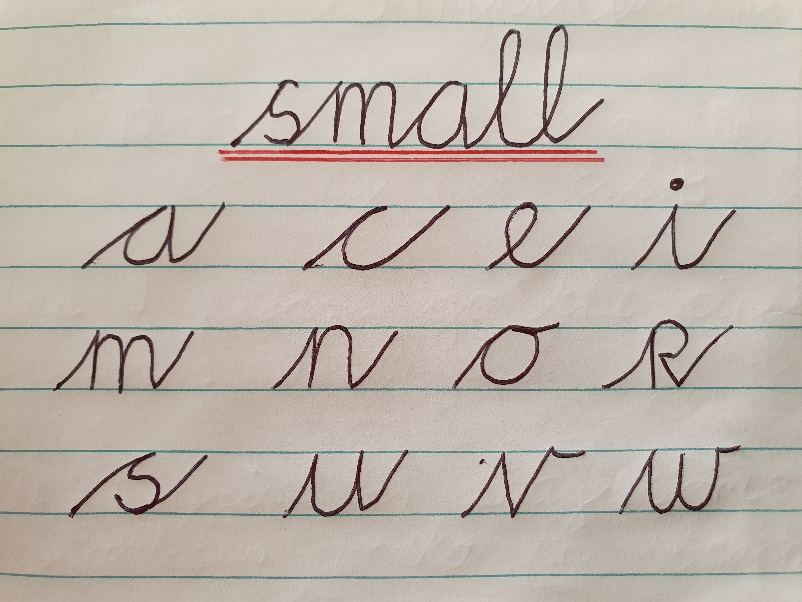 small
a c e i
m n o r
s u v w